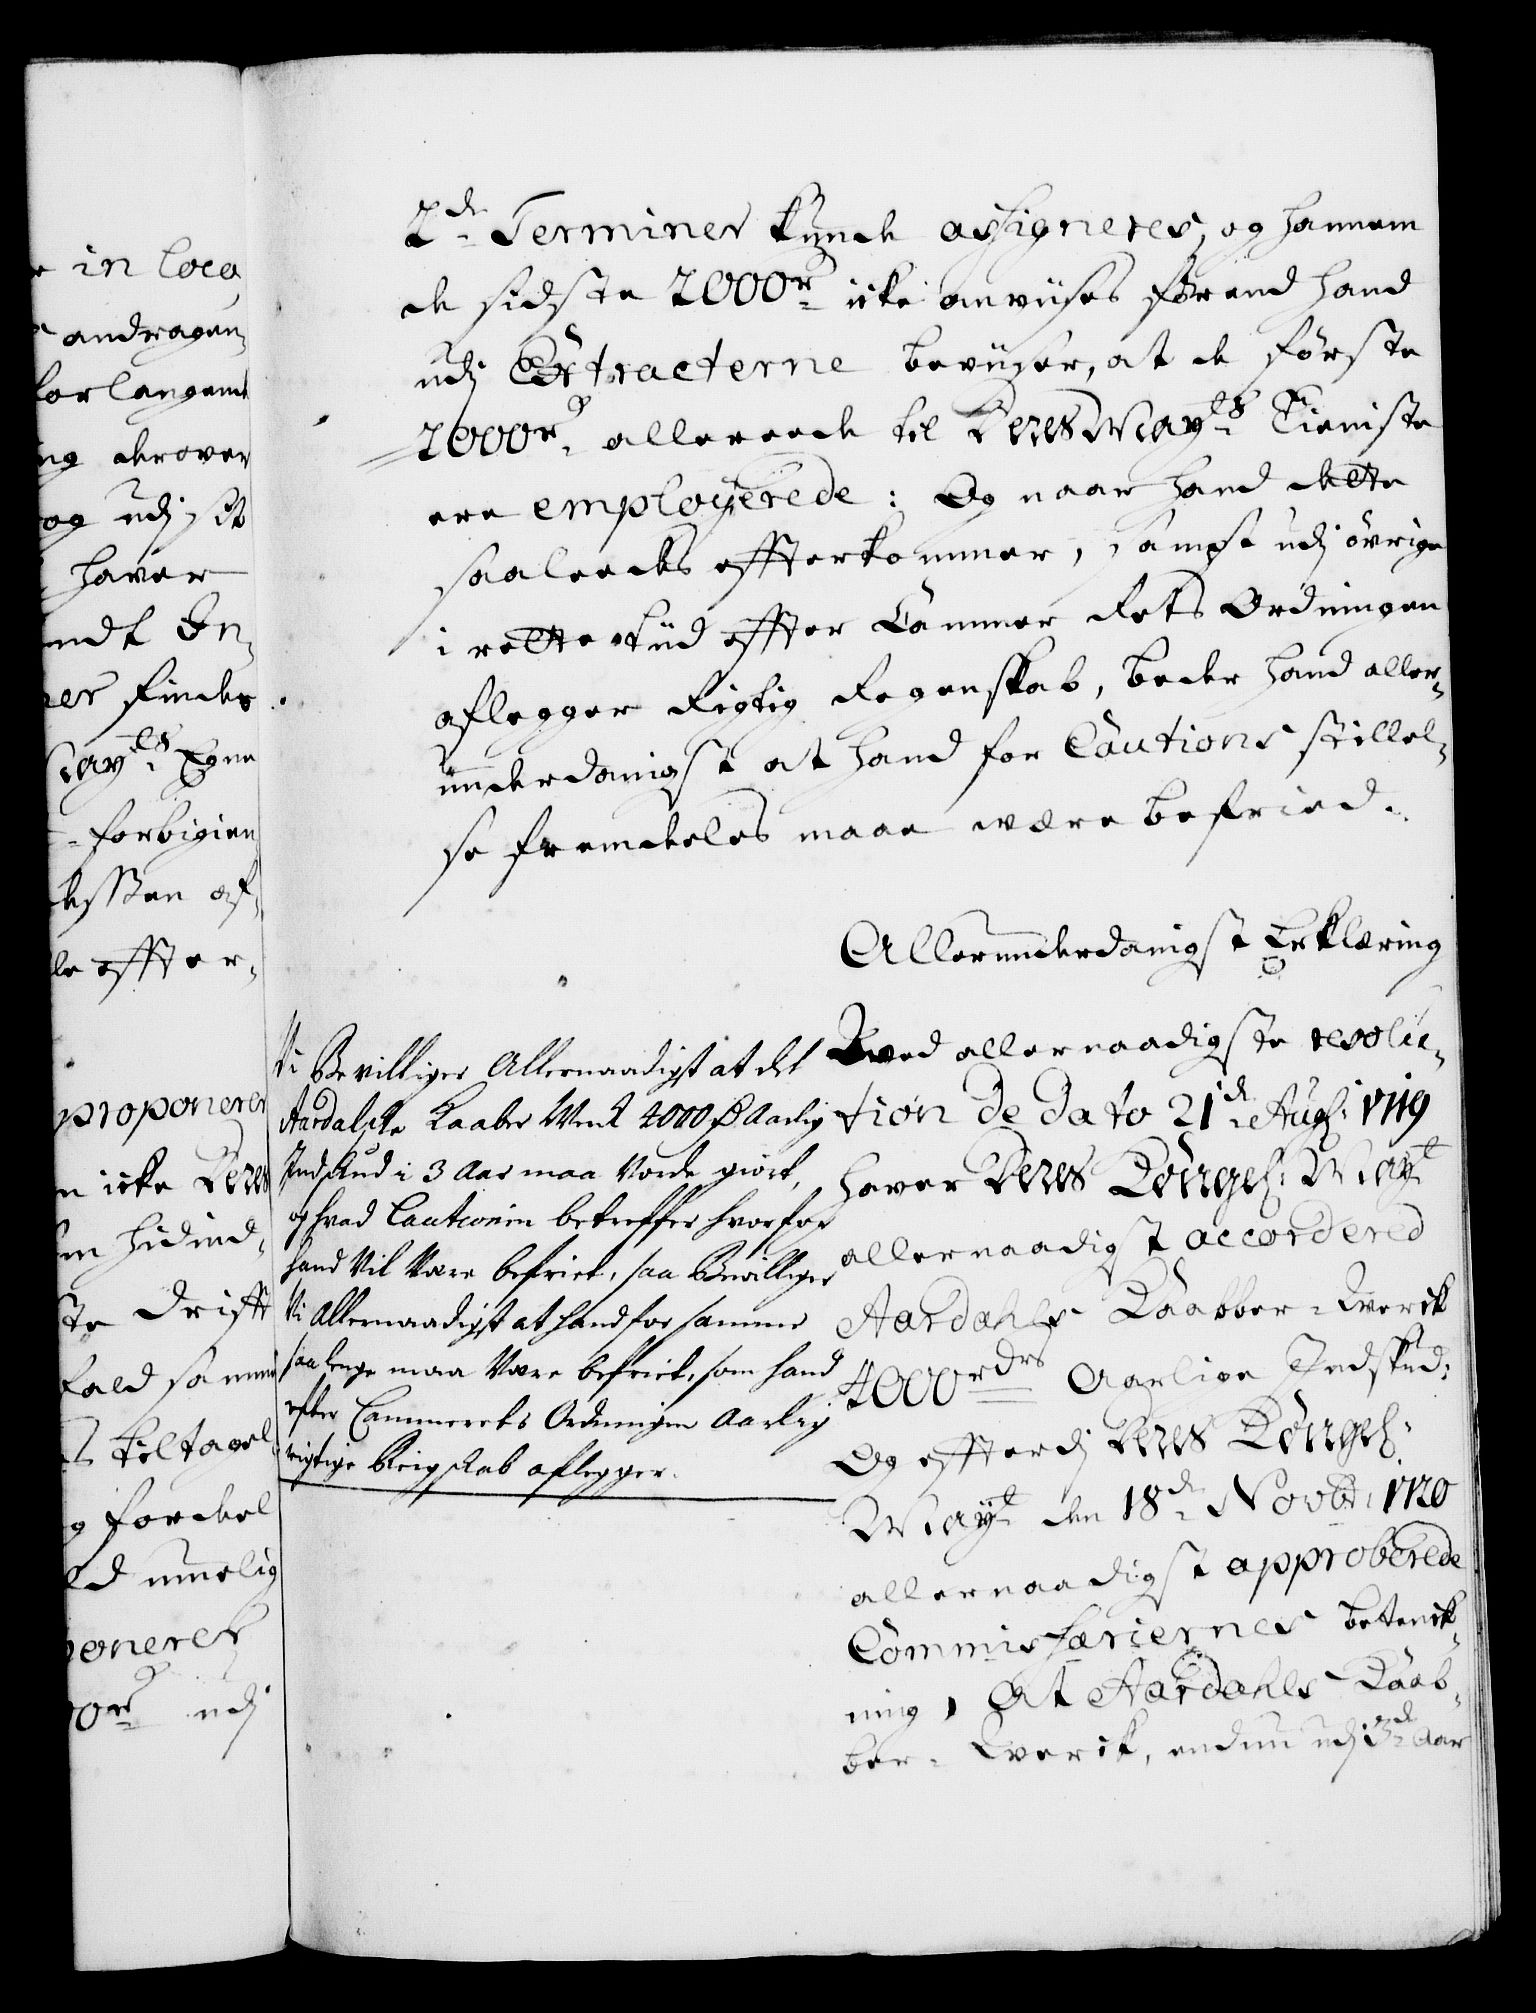 in loco
andragen
forlangend
ng derover
og udj sit
haver
ndt In-
ner findes
May:ts Egne
forbigien
desssten af-
le effter-
proponerer
n icke Deres
em hidind-
te Drifft
fald samme
s tiltagel-
g fordel
ld umuelig
poneret
00rd udj
2de Terminer kunde assigneres, og hannem
de sidste 2000rd icke anviises førend hand
udj Extracterne beviiser, at de første
2000rd allereede til Deres May:ts Tieniste
ere employerede: Og naar hand dette
saaleedes effterkommer, sampt udj övrige
i rette tiid effter Cammer Rets Ordningen
aflegger Rigtig Regenskab, beder hand aller-
underdanigst at hand for Cautions stillel-
se fremdeles maae være befried.
Allerunderdanigst Erklæring
Vi Bevilliger Allernaadigst at det
Aardalske Kaaber Werk 4000 Rd Aarlig
Indskud i 3 Aar maa Vorde giort,
og hvad Cautionen betreffer hvorfor
hand Vil Være befriet, saa Bevilliger
Vi Allernaadigst at hand for samme
saa lenge maa Være befriet, som hand
efter Cammerets Ordningen Aarlig
rigtige Reigskab aflegger.
Wed allernaadigste resolu-
tion de dato 21de Aug: 1719
haver Deres Kongel: May:t
allernaadigst accordered
Aardahls Kaabber-Werck
4000rdrs Aarlige Indskud:
Og effterdj Deres Kongel:
May:t den 18de Novbr: 1720
allernaadigst approberede
Commissariernes betenck-
ning, At Aardahls Kaab-
ber-Werck, endnu udj 3de Aar